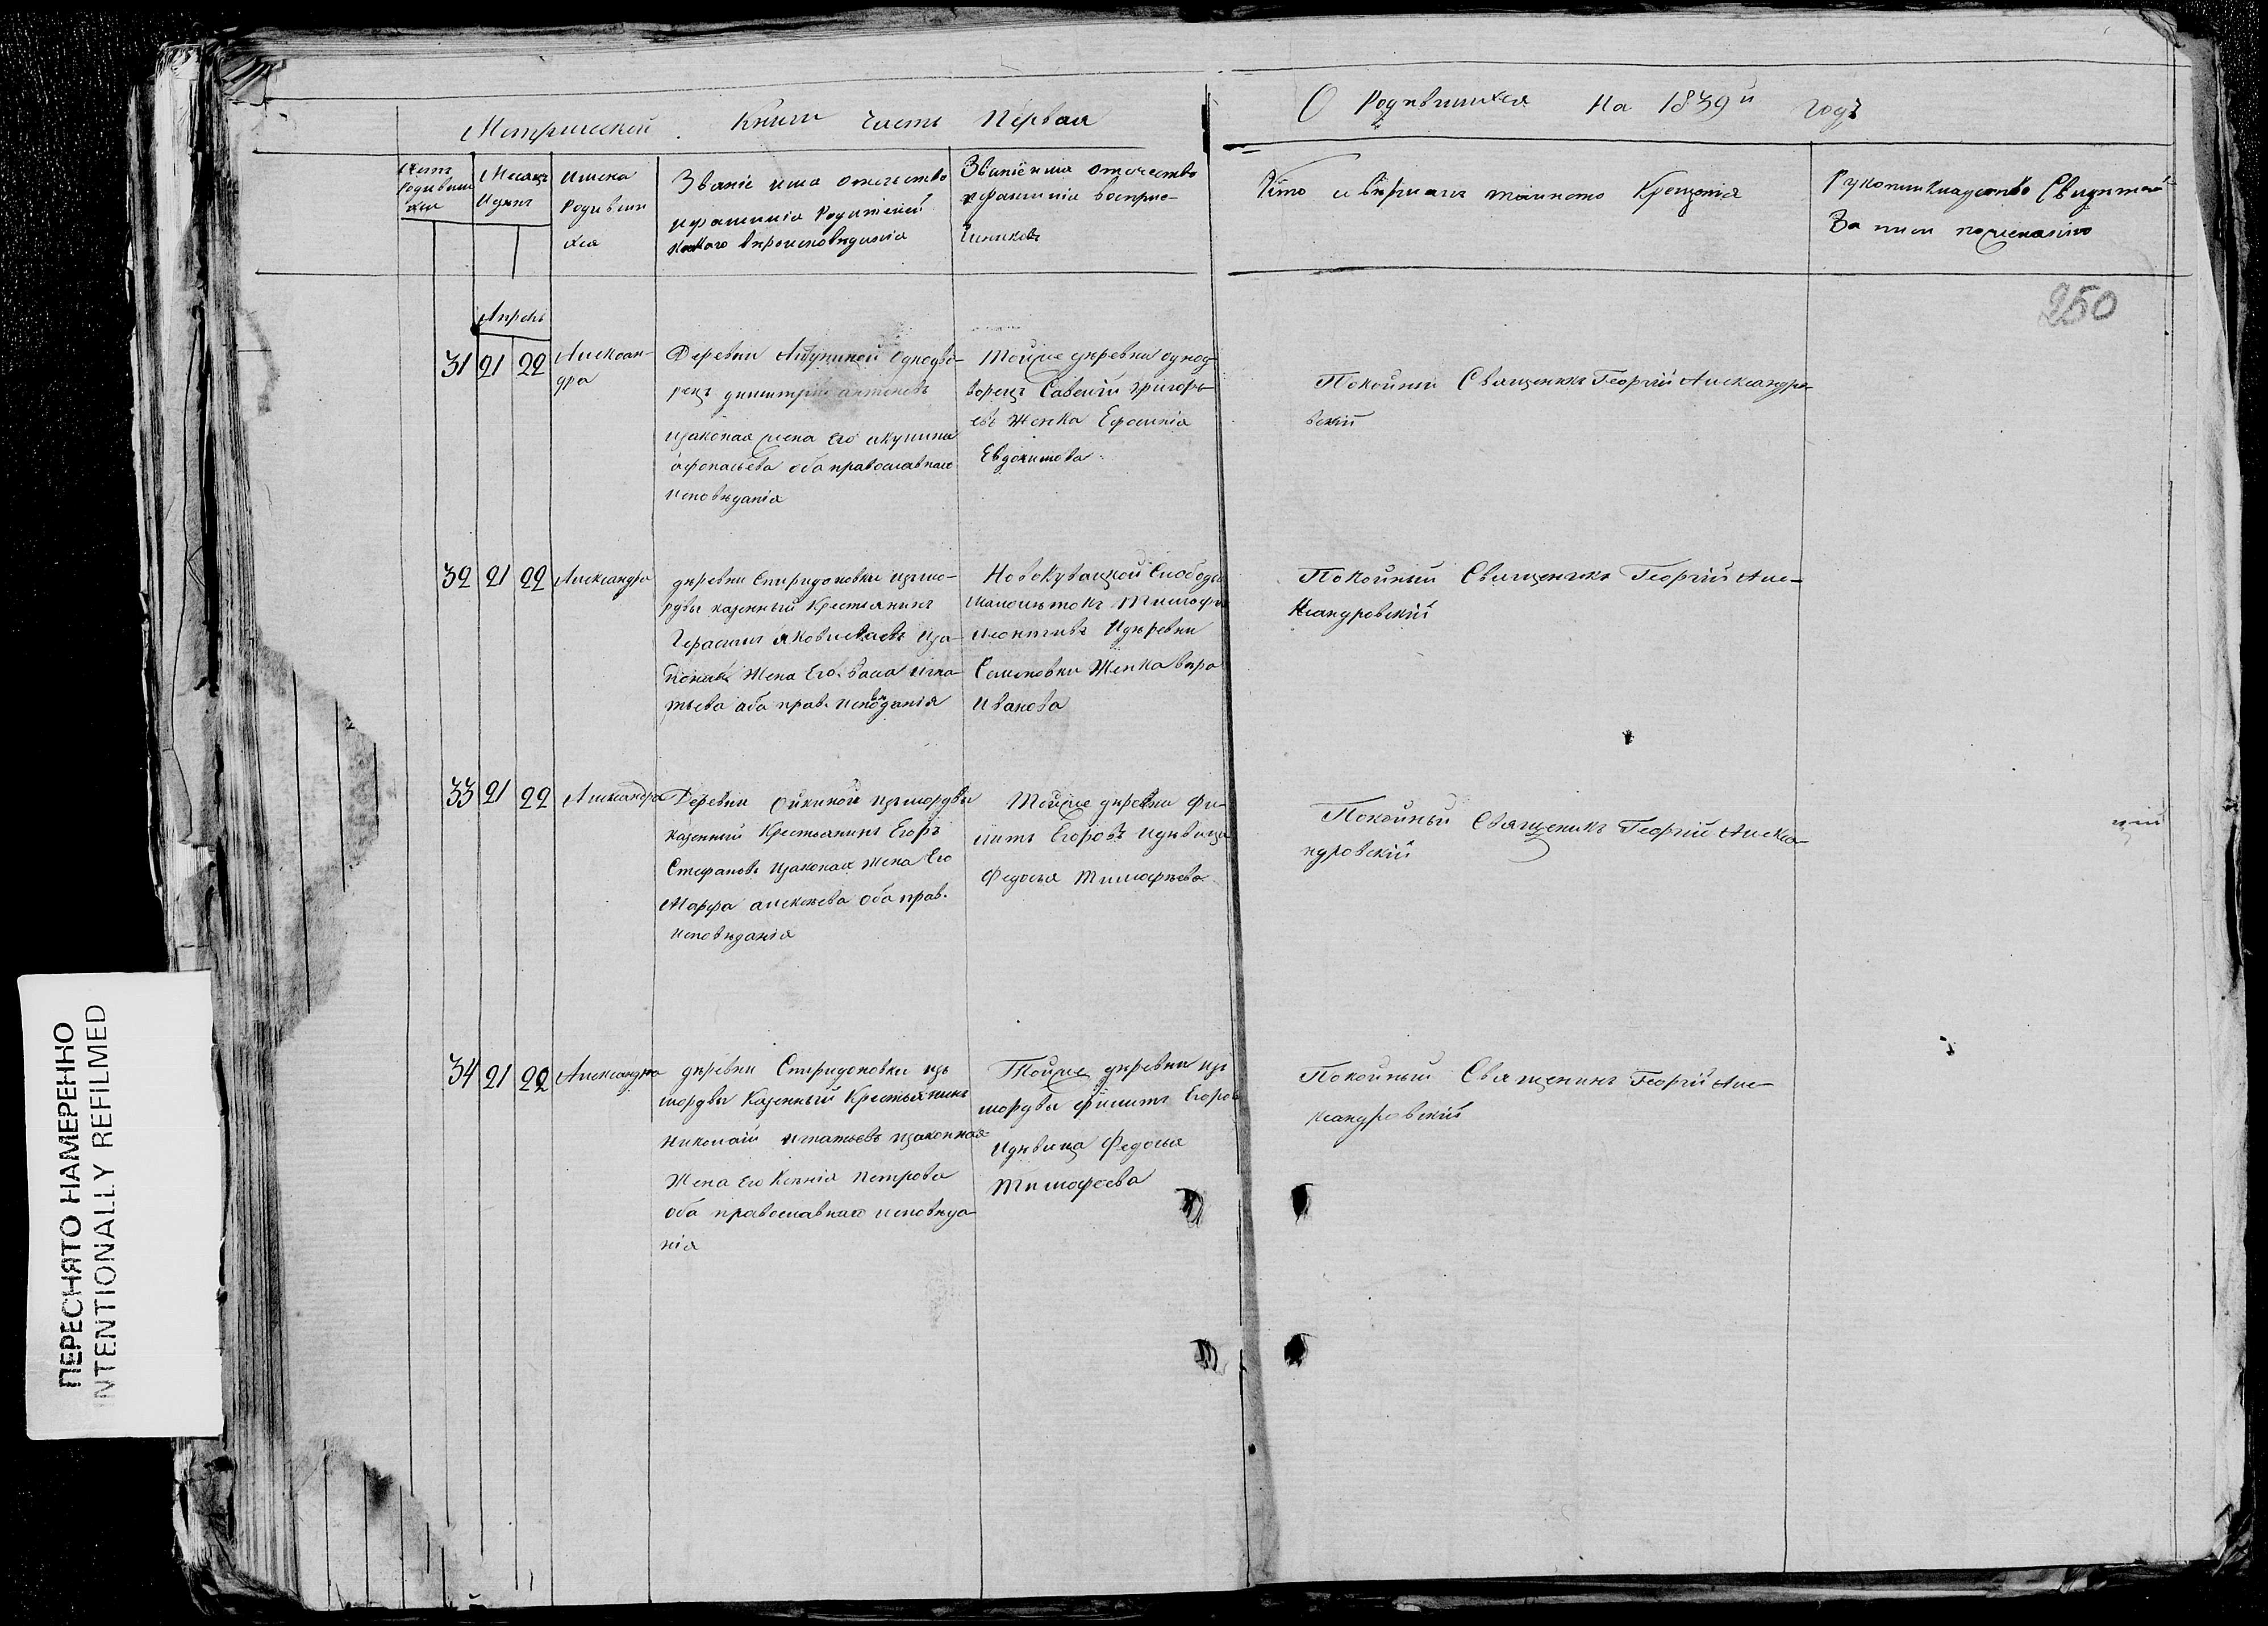 Метрической Книги часть Первая
О Родившихся На 1839й годъ
Счетъ родившихся
Месяцъ и день
Имена Родившихся
Званіе имя отечество
и фамилія Родителей
и какаго вѣроисповѣданія
Званіе имя отечество
и фамиліи воспріемниковъ
Кто совѣршалъ таинство Крещенія
Рукоприкладство Свидѣтелей
За писи по желанію
250
Апрель
31 21 22
Александра
Деревни однодво-
рецъ димитрій антоновъ
изаконая жена Его акулина
афонасьева оба православнаго
исповѣданія
Тойже деревни однод-
ворецъ Савелій григорь-
евъ Женка Ефимія
Евдокимова
Покойный Священикъ Георгій Александро-
вскій
32 21 22
Александра
деревни Спиридоновки измо-
рдвы казенный Крестьянинъ
Герасимъ яковлевъ иза-
коная Жена Его Васа игна-
тьева оба прав. исповѣданія
Новокувацкой Слободы
малолѣтокъ Тимофей
леонтивъ идѣревни
Семеновки Женка вѣра
Иванова
Покойный Священикъ Георгій Але-
ксандровскій
33 21 22
Александра
Деревни ойкиной измордвы
казенный Крестьянинъ Егоръ
Стефановъ изаконая жена Его
Марфа алексѣева оба прав.
исповѣданія
Тойже дѣревни фи-
липъ Егоровъ идѣвица
Федосья Тимофѣева
Покойный Священикъ Георгій Алекса-
ндровскій
34 21 22
Александра
дѣревни Спиридоновки изъ
мордвы Казенный Крестьянинъ
николай игнатьевъ изаконная
Жена его Ксенія Петрова
оба православнаго исповѣда-
нія
Тойже дѣревни изъ
мордвы филипъ Егоровъ
идѣвица Федосья
Тимофеева
Покойный Священикъ Георгій Але-
ксандровскій
ПЕРЕСНЯТО НАМЕРЕННО
INTENTIONALLY REFILMED